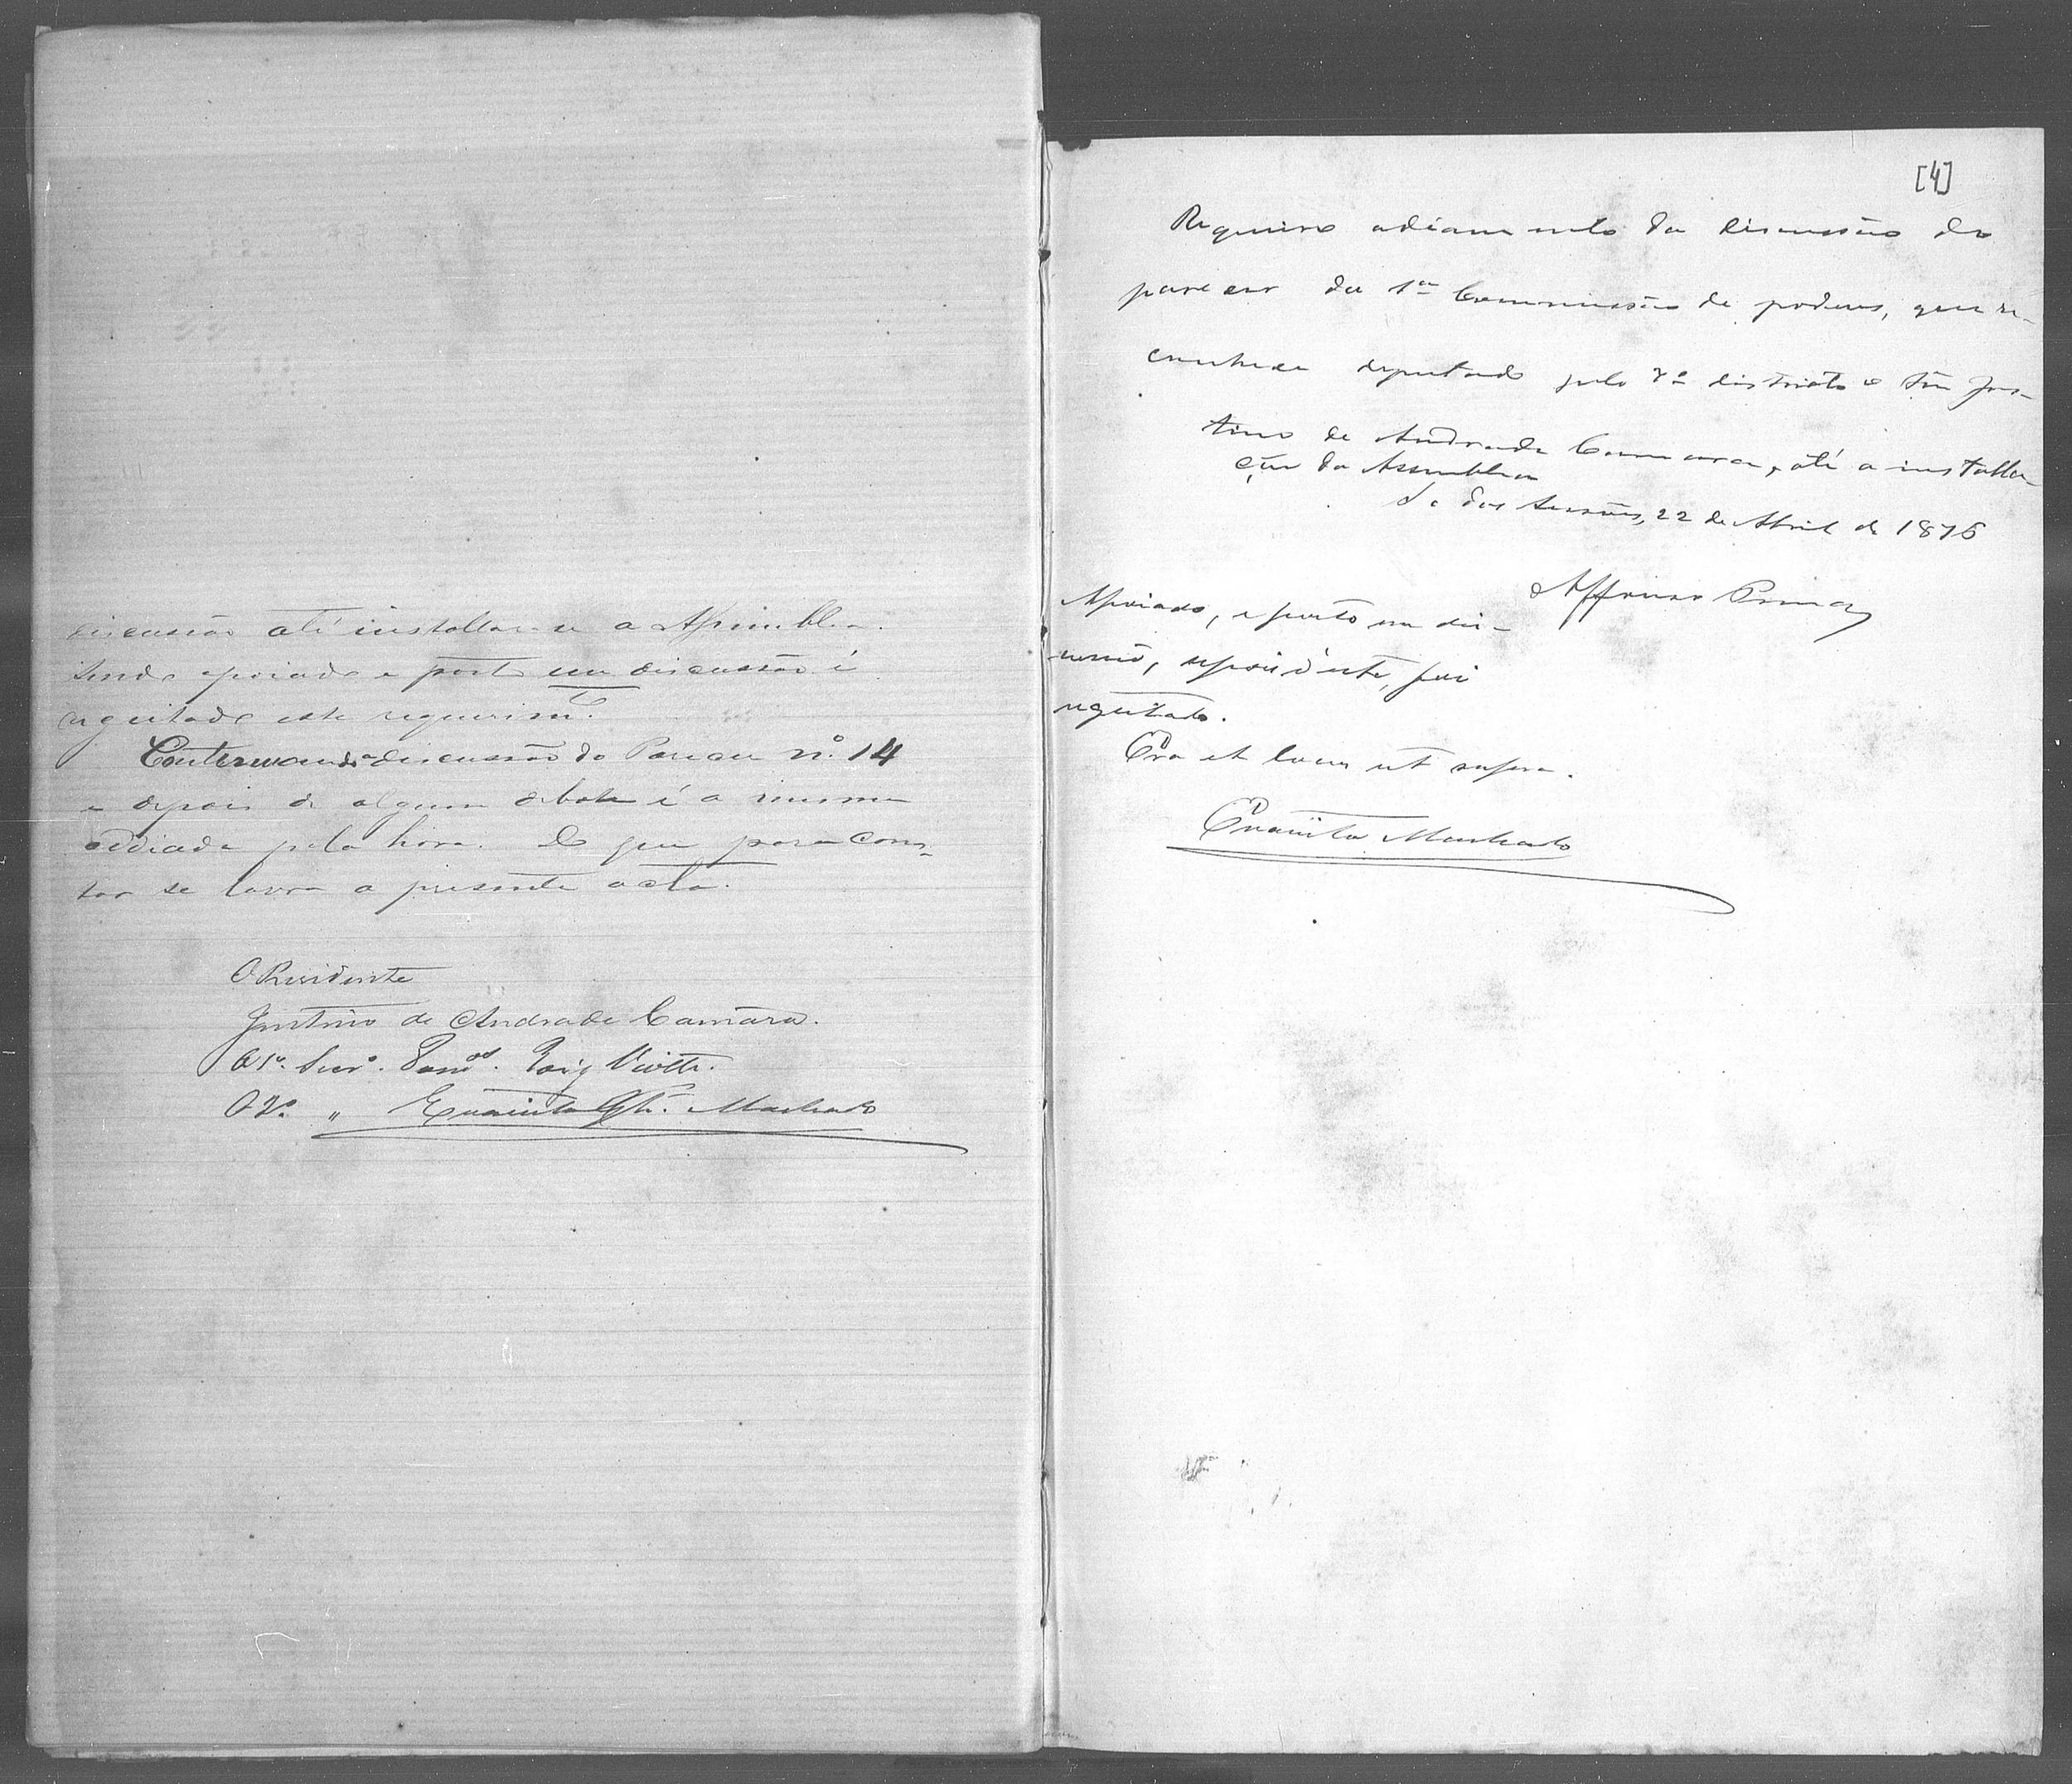 discussão até installar-se a Assemblea.
Sendo apoiado e posto em discussão é
regeitado este requerimto.
Continuando a discussão do Parecer nº 14
e depois de algum debate é a mesma
addiada pela hora. E que para cons-
tar se lavra a presente acta.
O Presidente
Justino de Andrade Camara.
O 1º. Secrº.
O 2º. " Machado
[4]
Requeiro adiamento da discussão do
parecer da 1ª Commissão de poderes, que re-
conhece deputado pelo 7º districto o Snr Jus-
tino de Andrade Camara, até a installa-
ção da Assemblea
S. das Sessões, 22 de Abril de 1876
Affonso Penna
Apoiado, e posto em dis-
cussão, foi
regeitado.
Era et locus ut supra.
Machado